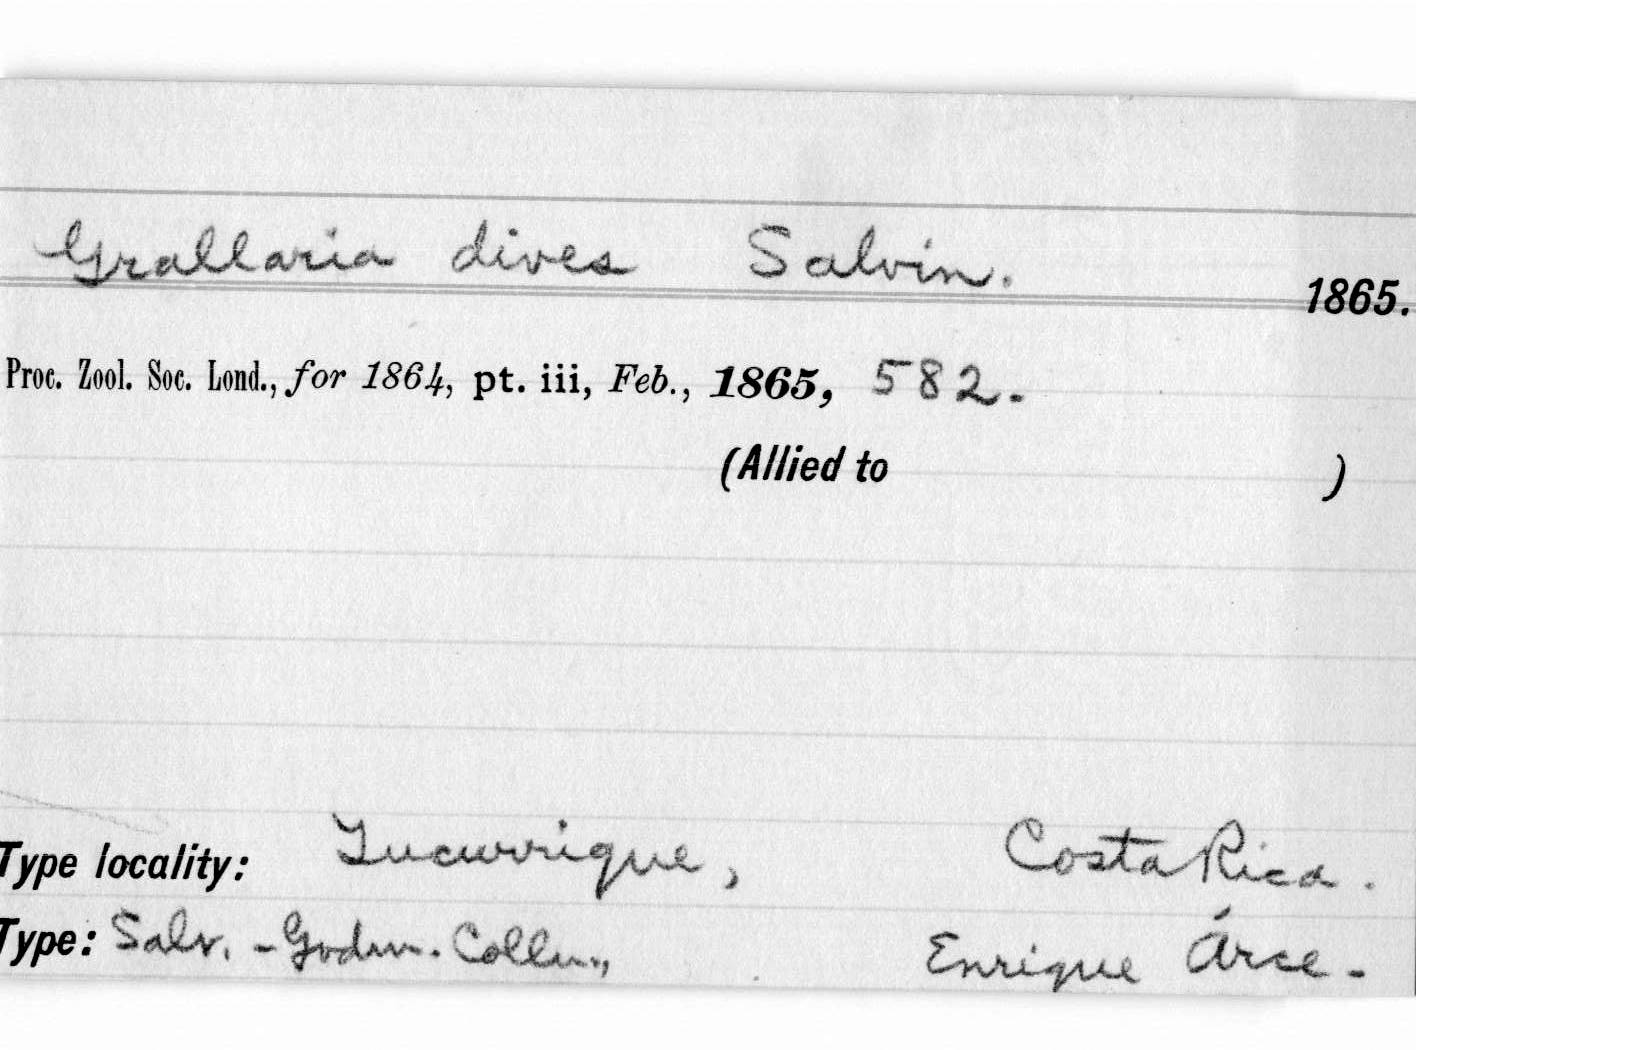 Grallaria dives Salvin.
1865.
Proc. Zool. Soc. Lond., for 1864, pt. iii, Feb., 1865, 582.
(Allied to )
Type locality: Tucurrique, Costa Rica.
Type: Salv. - Godm. Colln., Enrique Árce -